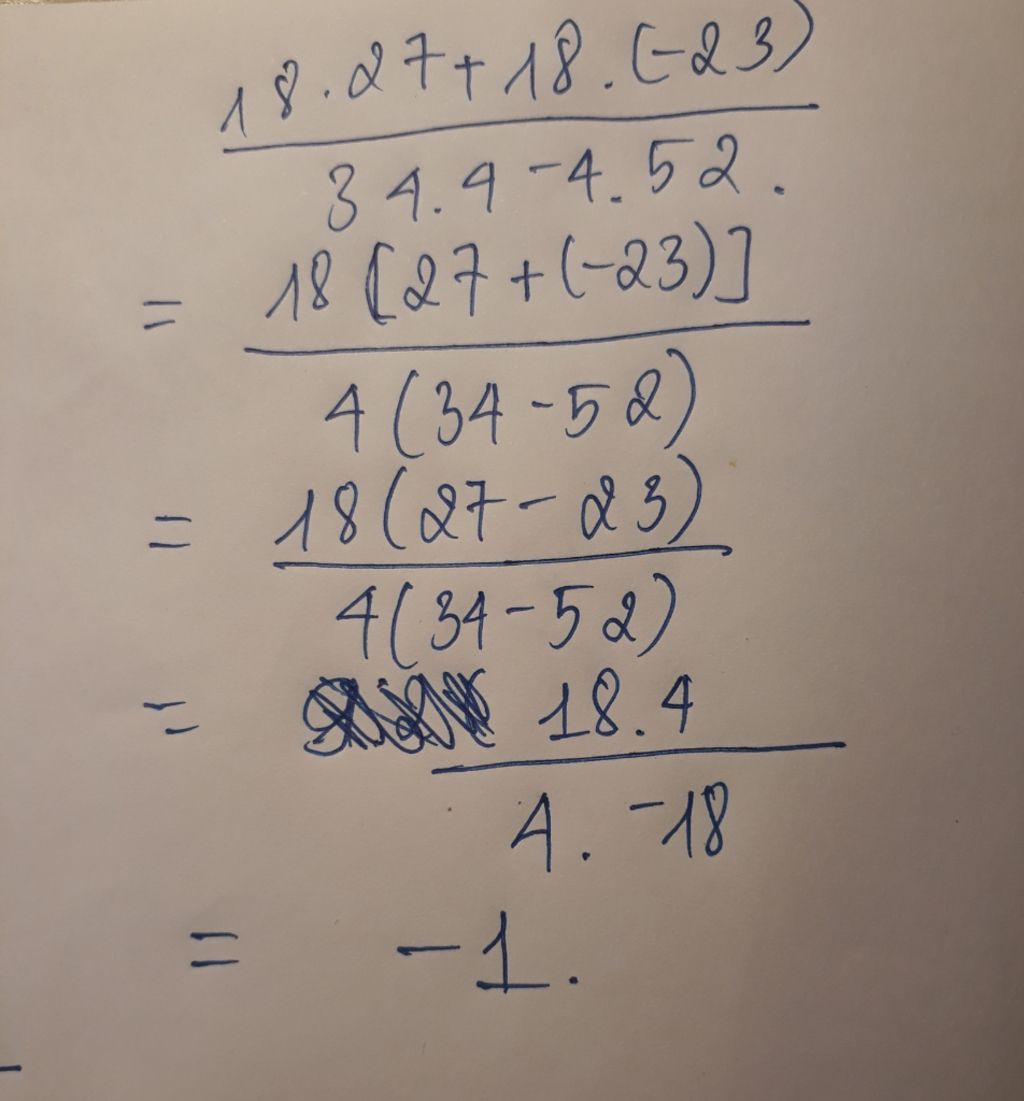 18.27+18.(-23)
34.4-4.52.
= 18[27+(-23)]
4(34-52)
= 18(27-23)
4(34-52)
= 18.4
4.-18
= -1.